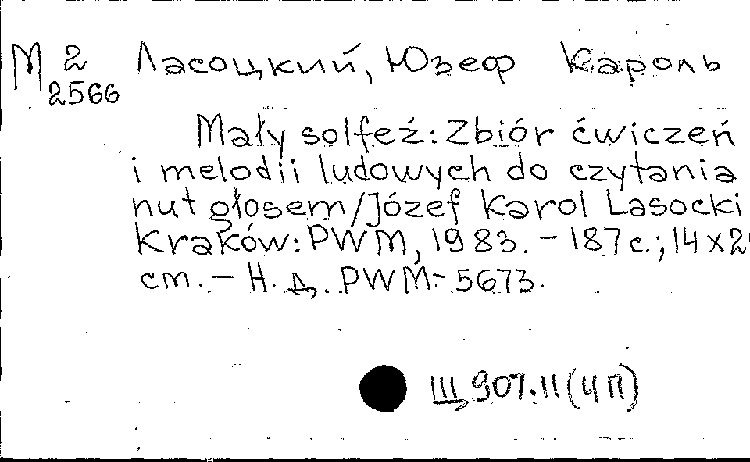 М 2 Ласоцкий, Юзеф Кароль
2566
Mały solfeż: Zbiór ćwiczeń
i melodii ludowych do czytania
nut głosem/Józef Karol Lasocki
Kraków: PWM, 1983. – 187 c.; 14 x 2
cm. – Н. д. PWM-5673.
Щ907.11(4П)